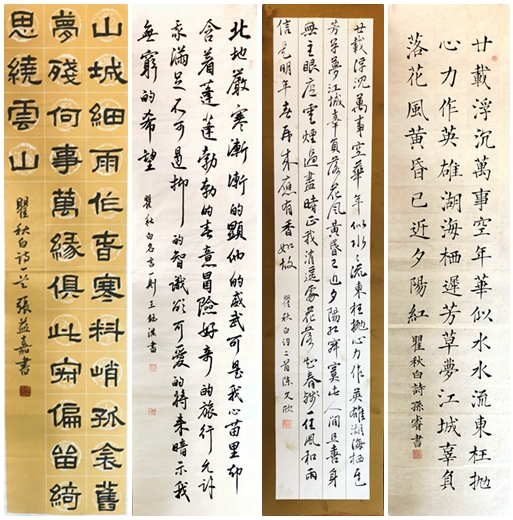 山城細雨作春寒料峭孤衾舊
夢殘何事萬緣俱此寂偏留綺
思繞雲山
瞿秋白詩一首 張益嘉書
北地嚴寒漸漸的顯他的威武可是我心苗里却
含着蓬蓬勃勃的春意冒險好奇的旅行允許
我滿足不可遏抑的智識欲可愛的將來暗示我
無窮的希望
瞿秋白名言一則 王 洪書
廿載浮沉萬事空華年似水水流東枉拋心力作英雄湖海棲遲
芳草夢江城辜負落花風黃昏已近夕陽紅寂寞此人間且喜身
無主眼底雲煙過盡時正我逍遙處花落知春殘一任風和雨
信是明年春再來應有香如故
瞿秋白詩二首陳文欣
廿載浮沉萬事空年華似水水流東枉拋
心力作英雄湖海棲遲芳草夢江城辜負
落花風黃昏已近夕陽紅
瞿秋白詩孫睿書